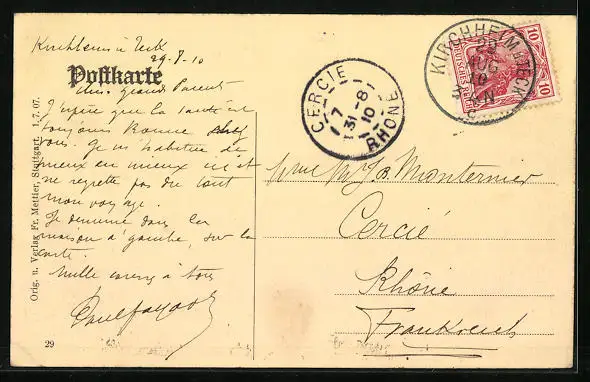 Kirchheim u Teck
29.8.10
Postkarte
Chers Grand Parent
J'espère que la santé est
toujours bonne chez
vous. Je m'habitue de
mieux en mieux ici et
ne regrette pas du tout
mon voyage.
Je demeure dans la
maison à gauche, sur la
carte.
Mille caresses à tous
Orig. u. Verlag Fr. Mettier, Stuttgart. 1. 7. 07.
29
CERCIE
7
31 -8
10
RHONE
KIRCHHEIM u. TECK
29
AUG
10
DEUTSCHES REICH
10
10
Mme
Cercié
Rhône
Frankreich